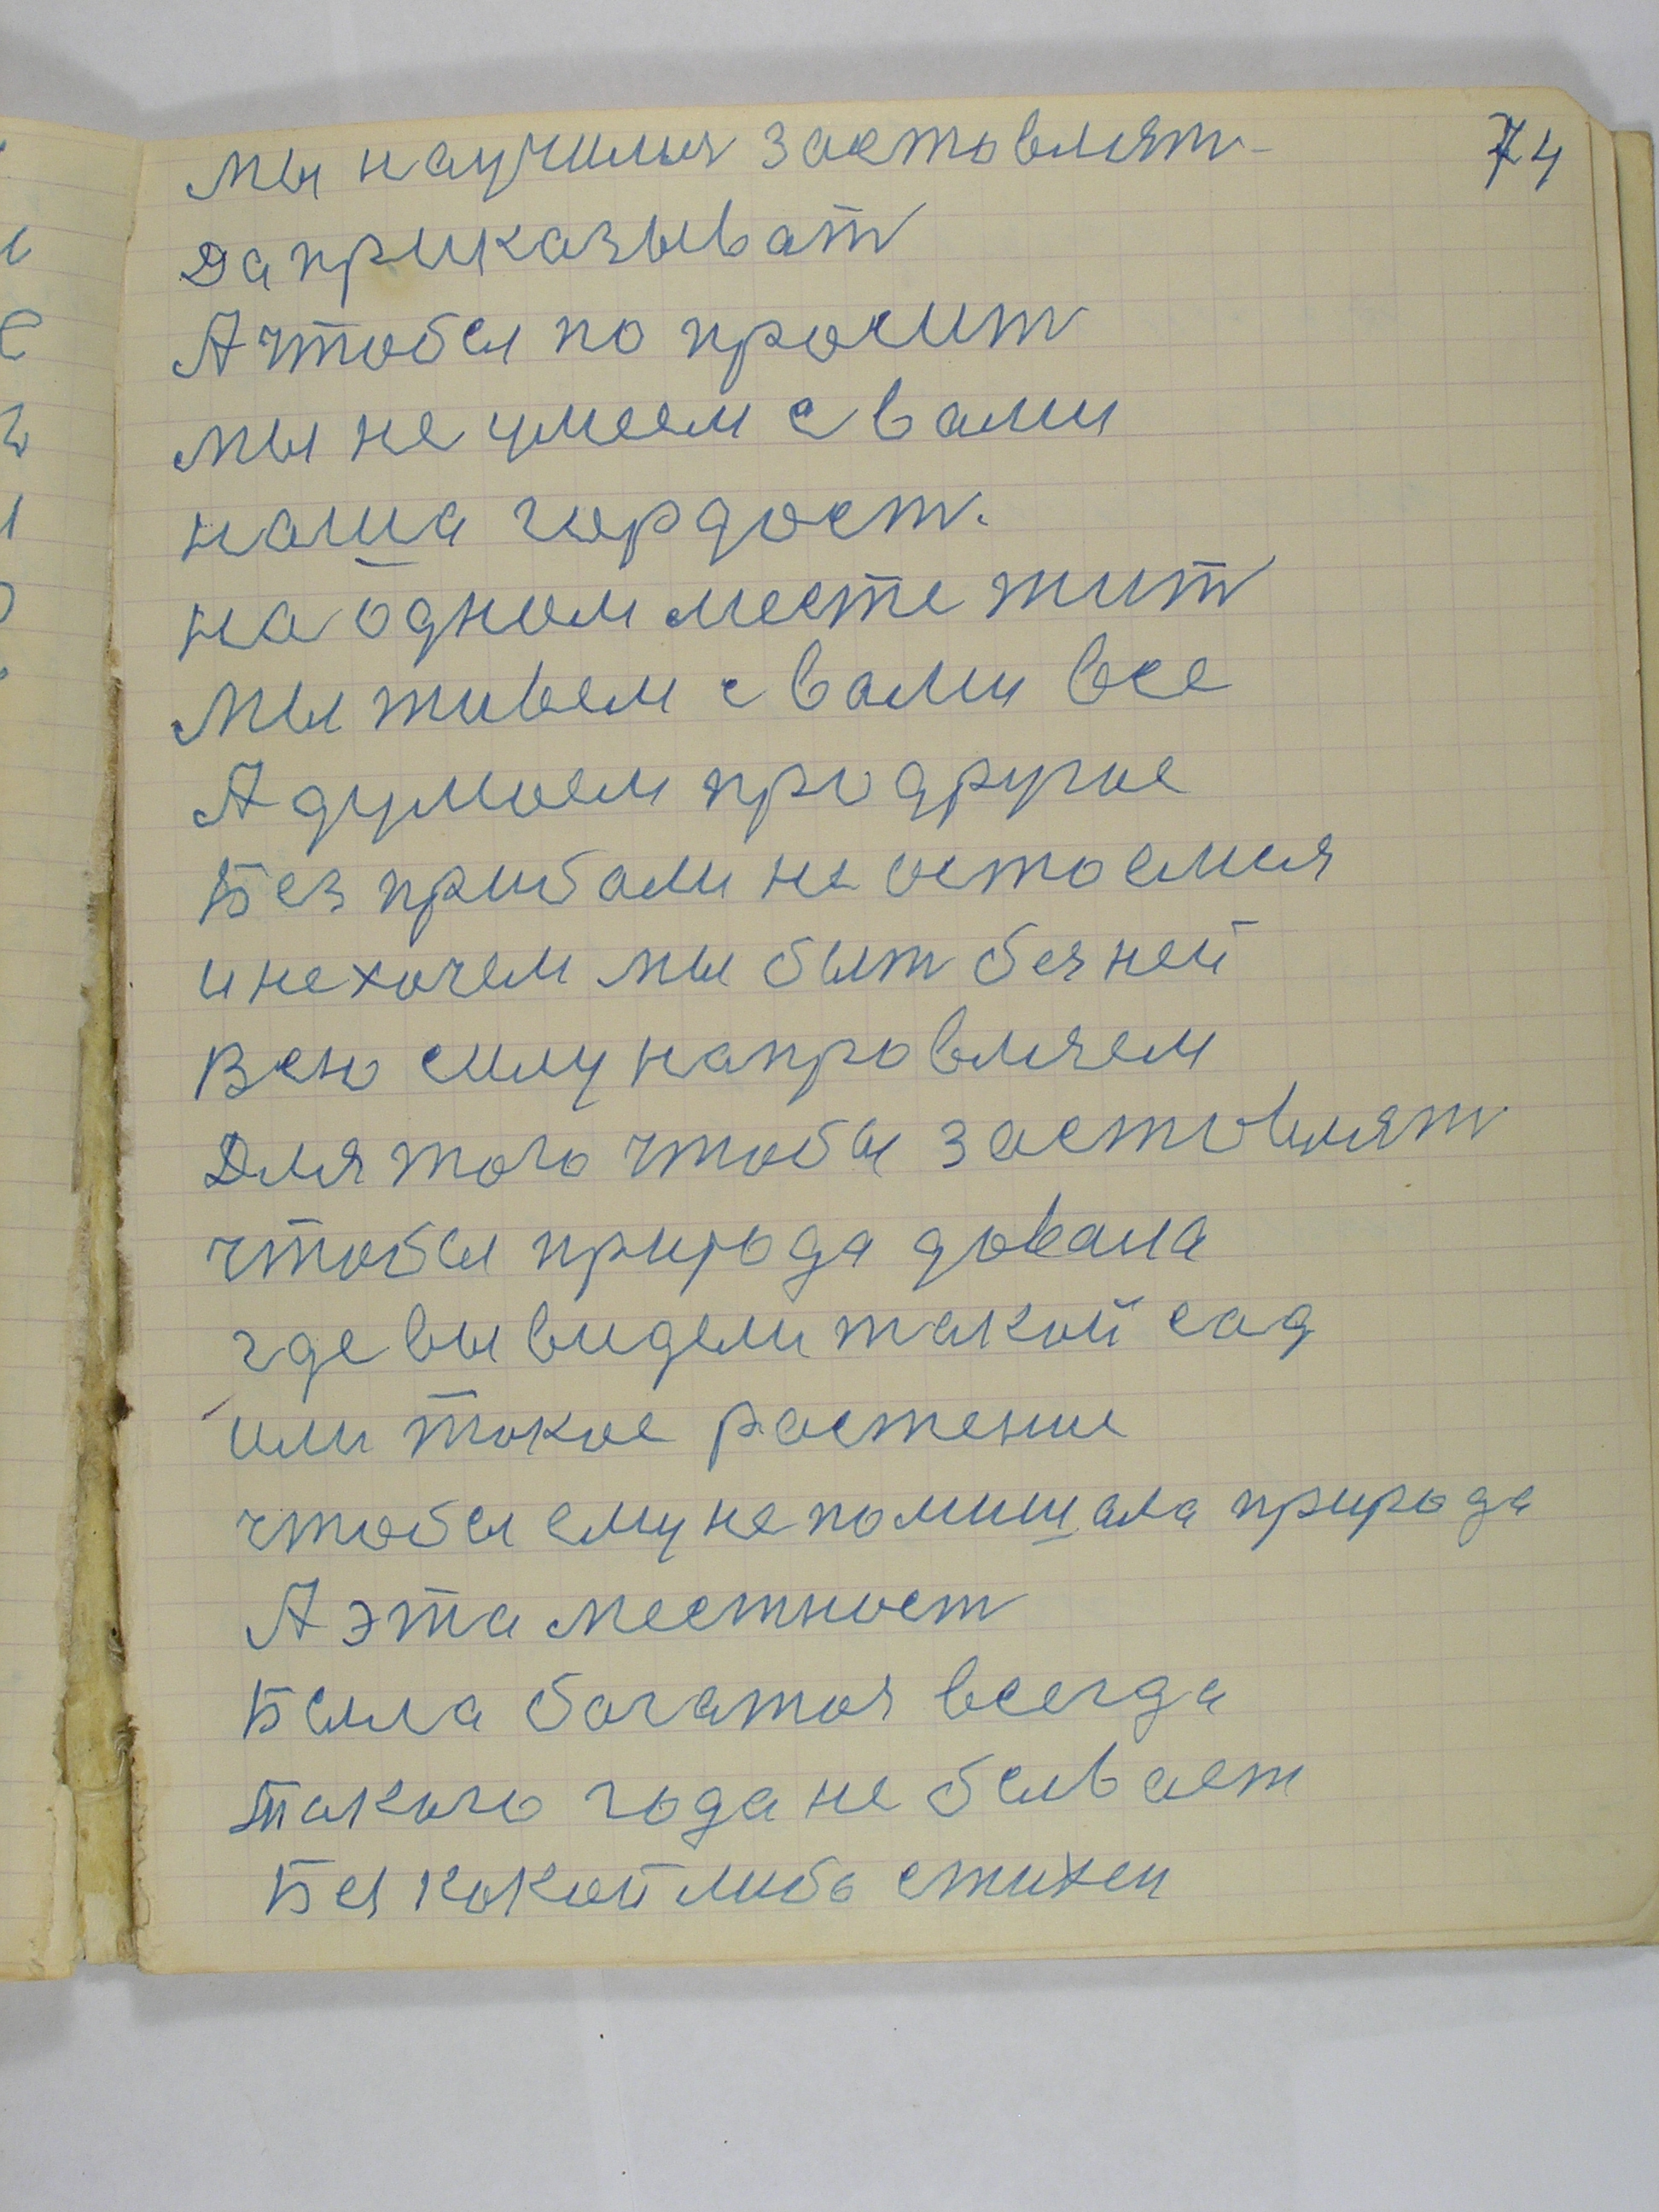 74
мы научился заставлят
Да приказыват
А чтобы по просит
мы не умеем с вами
наша гордост.
на одном месте жит
мы живем с вами все
А думаем про другое
Без приболи не остаемся
и не хочем мы быт без ней
Всю силу направляем
Для того чтобы заставлят
чтобы природа давала
где вы видели такой сад
или такое растение
чтобы ему не помишала природа
А эта местност
Была богатоя всегда
такого года не бывает
Без какой либо стихеи